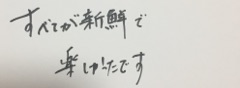 すべてが新鮮で
楽しかったです